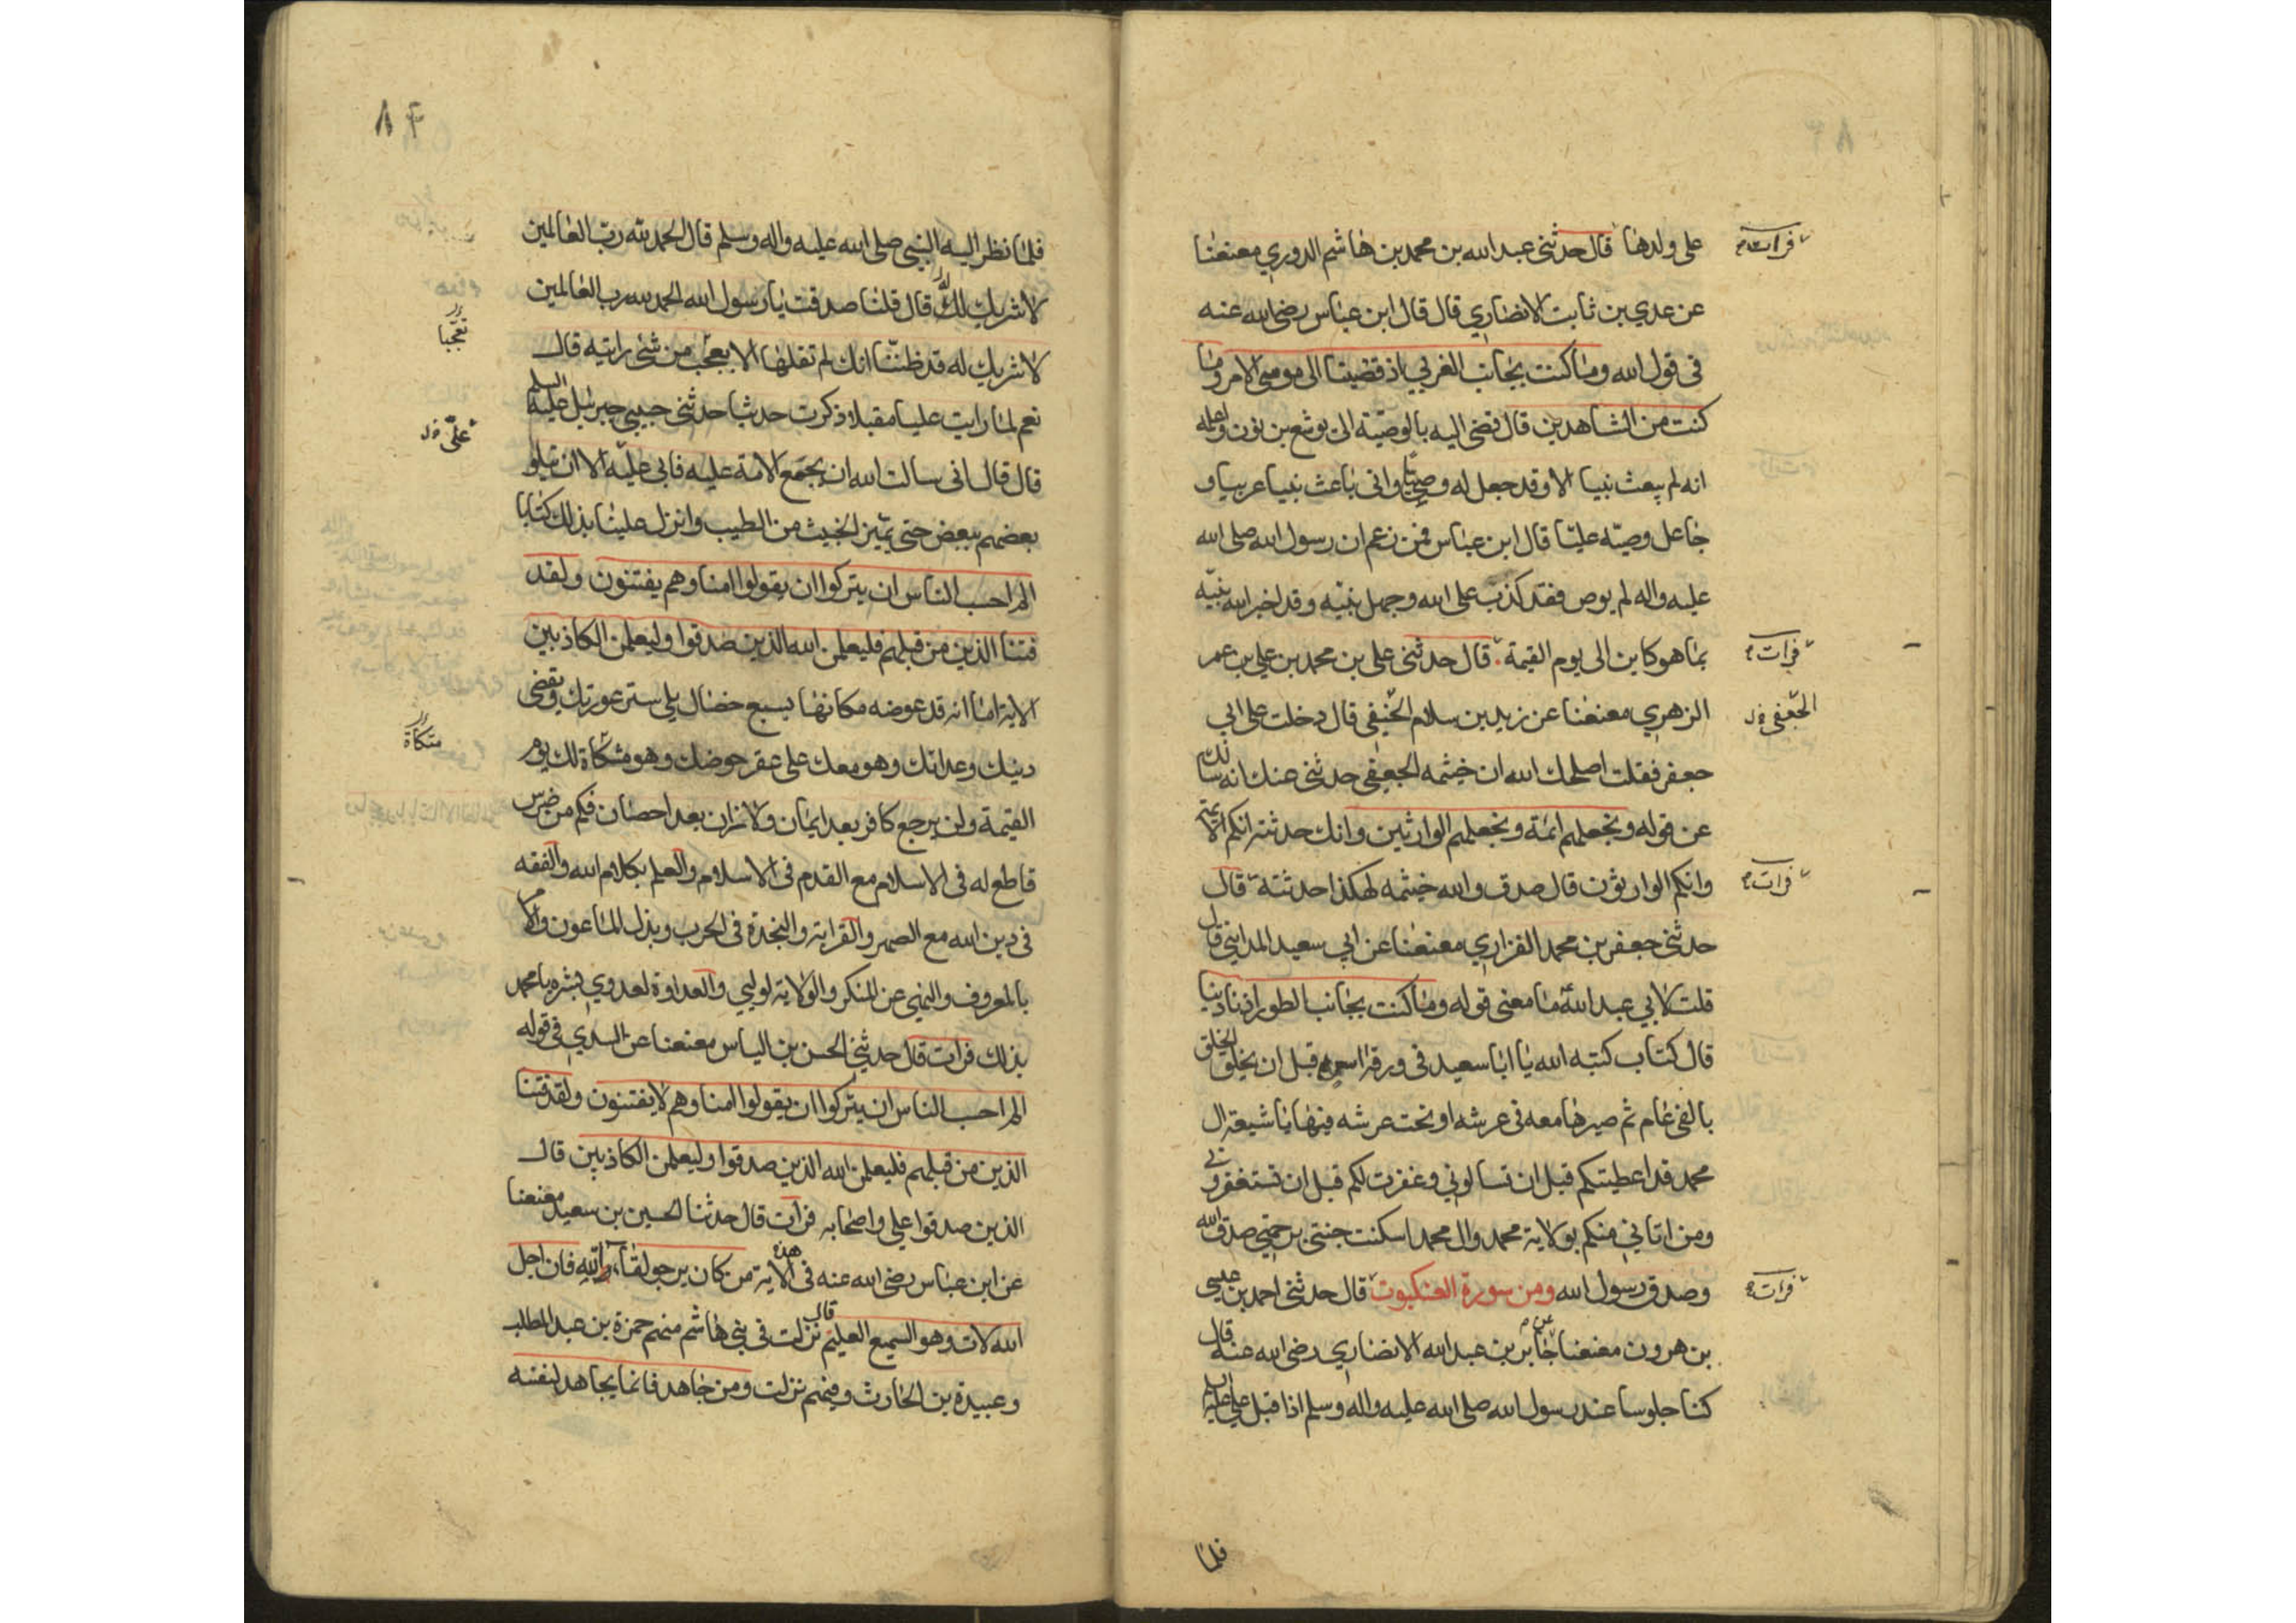 على ولدها قال حدثنى عبد الله بن محمد بن هاشم الدوري معنعنا
فرات
عن عدي بن ثابت الانصاري قال قال ابن عباس رضى الله عنه
فى قول الله وما كنت بجانب الغربي اذ قضينا الى موسى الامر وما
كنت من الشاهدين قال قضى اليه بالوصية الى يوشع بن نون واعلمه
انه لم يبعث نبيا الا وقد جعل له وصيا وانى باعث نبيا عربيا و
جاعل وصيه عليا قال ابن عباس فمن زعم ان رسول الله صلى الله
عليه واله لم يوص فقد كذب على الله وجهل نبيه وقد اخبر الله نبيه
بما هو كاين الى يوم القيمة قال حدثنى على بن محمد بن علي بن عمر
فرات
الزهري معنعنا عن زيد بن سلام الحنيفي قال دخلت على ابي
الجعفى
جعفر فقلت اصلحك الله ان خيثمه الجعيفى حدثنى عنك انه سالك
عن قوله ونجعلهم ائمة ونجعلهم الوارثين وانك حدثته انكم الائمة
وانكم الوارثون قال صدق والله خيثمه لهكذا حدثته قال
فرات
حدثنى جعفر بن محمد الفزاري معنعنا عن ابي سعيد المدايني قال
قلت لابي عبد الله ما معنى قوله وما كنت بجانب الطور اذ نادينا
قال كتاب كتبه الله يا ابا سعيد فى ورقة اس قبل ان يخلق الخلق
بالفى عام ثم صيرها معه فى عرشه او تحت عرشه فيها يا شيعة ال
محمد قد اعطيتكم قبل ان تسالوني وغفرت لكم قبل ان تستغفروني
ومن اتاني منكم بولاية محمد وال محمد اسكنت جنتي برحمتي صدق الله
وصدق رسول الله ومن سورة العنكبوت قال حدثنى احمد بن عيسى
فرات
بن هرون معنعنا عن جابر بن عبد الله الانصاري رضى الله عنه قال
كنا جلوسا عند رسول الله صلى الله عليه واله وسلم اذا قبل علي عليه السلم
فلما
٨٤
فلما نظر اليه النبي صلى الله عليه واله وسلم قال الحمد لله رب العالمين
لا شريك لك قال قلنا صدقت يا رسول الله الحمد لله رب العالمين
لا شريك له قد ظننا انك لم تقلها الا بعجب من شئ رايته قال
تعجبا
نعم لما رايت عليا مقبلا ذكرت حديثا حدثنى حبيبي جبرئيل عليه السلم
قال قال انى سالت الله ان يجتمع الامة عليه فابى عليه الا ان يبلو
علي
بعضهم ببعض حتى يميز الخبيث من الطيب وانزل علينا بذلك كتابا
الم احسب الناس ان يتركوا ان يقولوا امنا وهم يفتنون ولقد
فتنا الذين من قبلهم فليعلمن الله الذين صدقوا وليعلمن الكاذبين
الاية اما انه قد عوضه مكانها بسبع خصال يلى ستر عورتك ويقضى
دينك وعداتك وهو معك على عقر حوضك وهو مشكاة لك يوم
متكاة
القيمة ولن يرجع كافر بعد ايمان ولا زان بعد احصان فكم من ضرس
قاطع له فى الاسلام مع القدم فى الاسلام والعلم بكلام الله والفقه
فى دين الله مع الصهر والقرابة والنجدة فى الحرب وبذل الماعون والامر
بالمعروف والنهي عن المنكر والولاية لوليي والعداوة لعدوي بشره يا محمد
بذلك فرات قال حدثنى الحسن بن الياس معنعنا عن السدي فى قوله
الم احسب الناس ان يتركوا ان يقولوا امنا وهم لا يفتنون ولقد فتنا
الذين من قبلهم فليعلمن الله الذين صدقوا وليعلمن الكاذبين قال
الذين صدقوا علي واصحابه فرات قال حدثنا الحسين بن سعيد معنعنا
عن ابن عباس رضى الله عنه فى هذه الاية من كان يرجو لقاء الله فان اجل
الله لات وهو السميع العليم قال نزلت فى بني هاشم منهم حمزة بن عبد المطلب
وعبيدة بن الحارث وفيهم نزلت ومن جاهد فانما يجاهد لنفسه